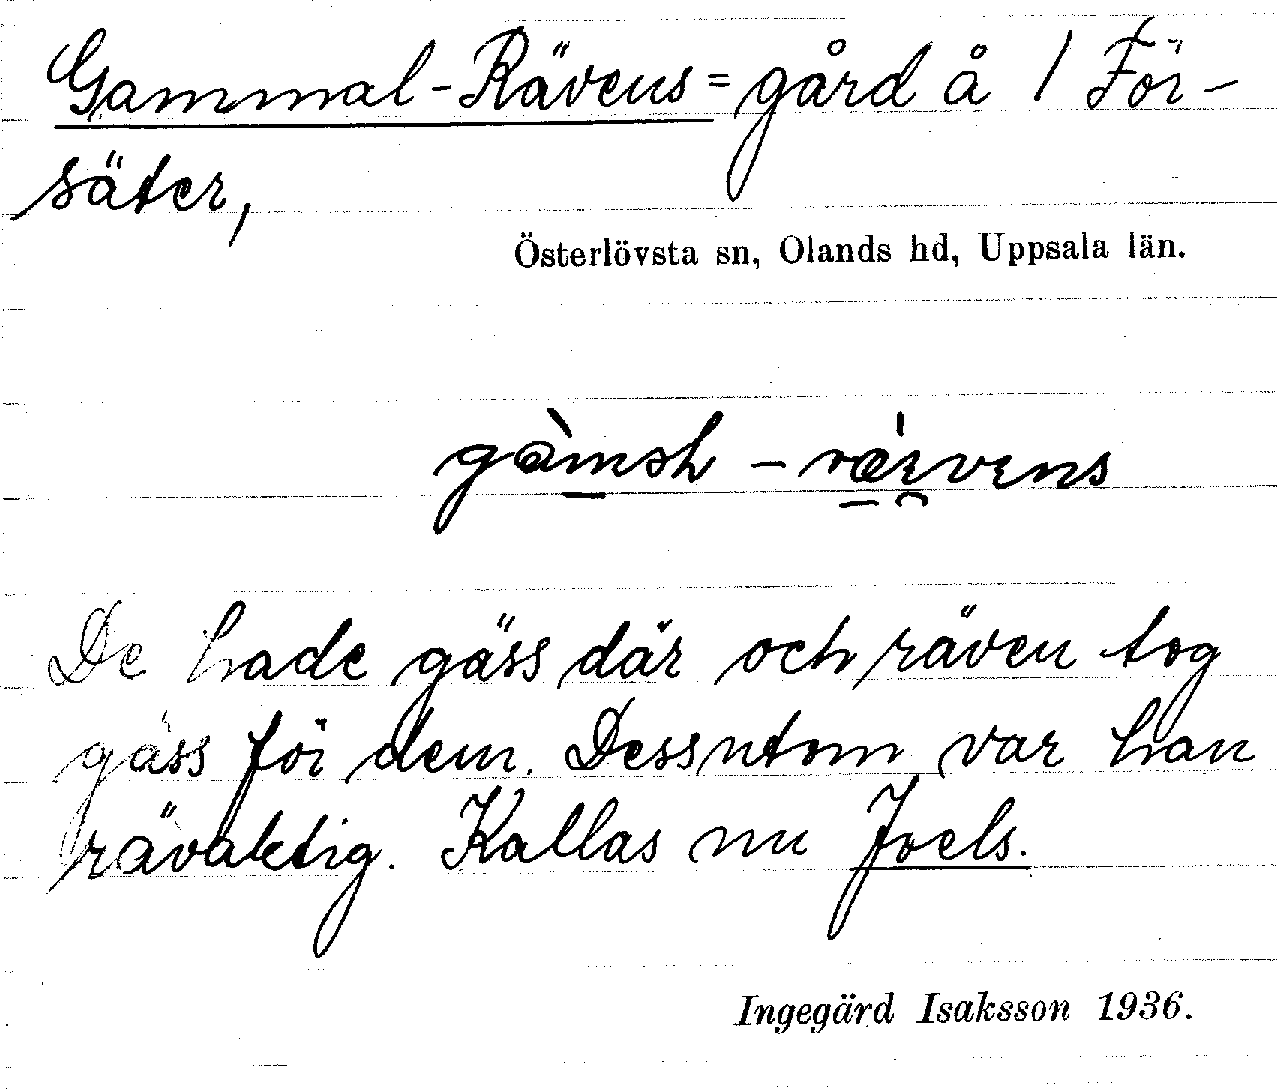 Gammal-Rävens = gård å 1 För-
säter,
Österlövsta sn, Olands hd, Uppsala län.
De hade gäss där och räven tog
gäss för dem. Dessutom var han
rävaktig. Kallas nu Joels.
Ingegärd Isaksson 1936.